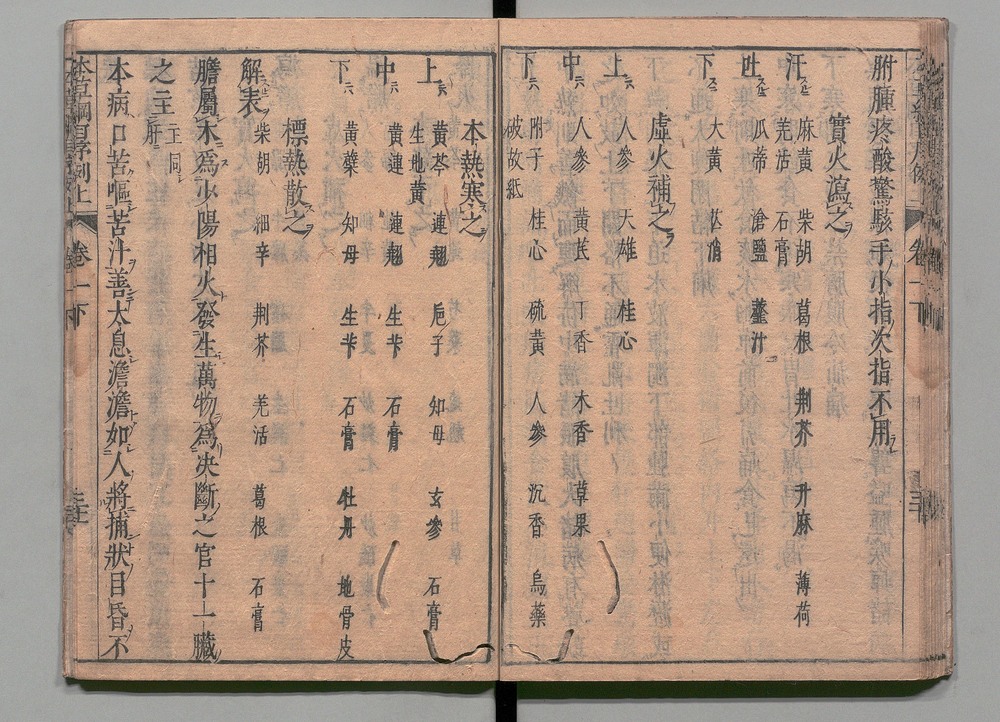 胕腫疼酸驚駭手小指次指不用
實火瀉之
汗 麻黃 柴胡 葛根 荆芥 升麻 薄荷
羌活 石膏
吐 瓜蒂 滄鹽 虀汁
下 大黃 芒硝
虛火補之
上 人參 天雄 桂心
中 人參 黃芪 丁香 木香 草果
下 附子 桂心 硫黃 人參 沉香 烏藥
破故紙
本熱寒之
上 黃芩 連翹 巵子 知母 玄參 石膏
生地黃
中 黃連 連翹 生芐 石膏
下 黃蘗 知母 生芐 石膏 牡丹 地骨皮
標熱散之
解表 柴胡 細辛 荆芥 羌活 葛根 石膏
膽屬木爲少陽相火發生萬物爲决斷之官十一臟
之主 主肝同
本病口苦嘔苦汁善太息澹澹如人將捕狀目昏不
卷一下
卷一下